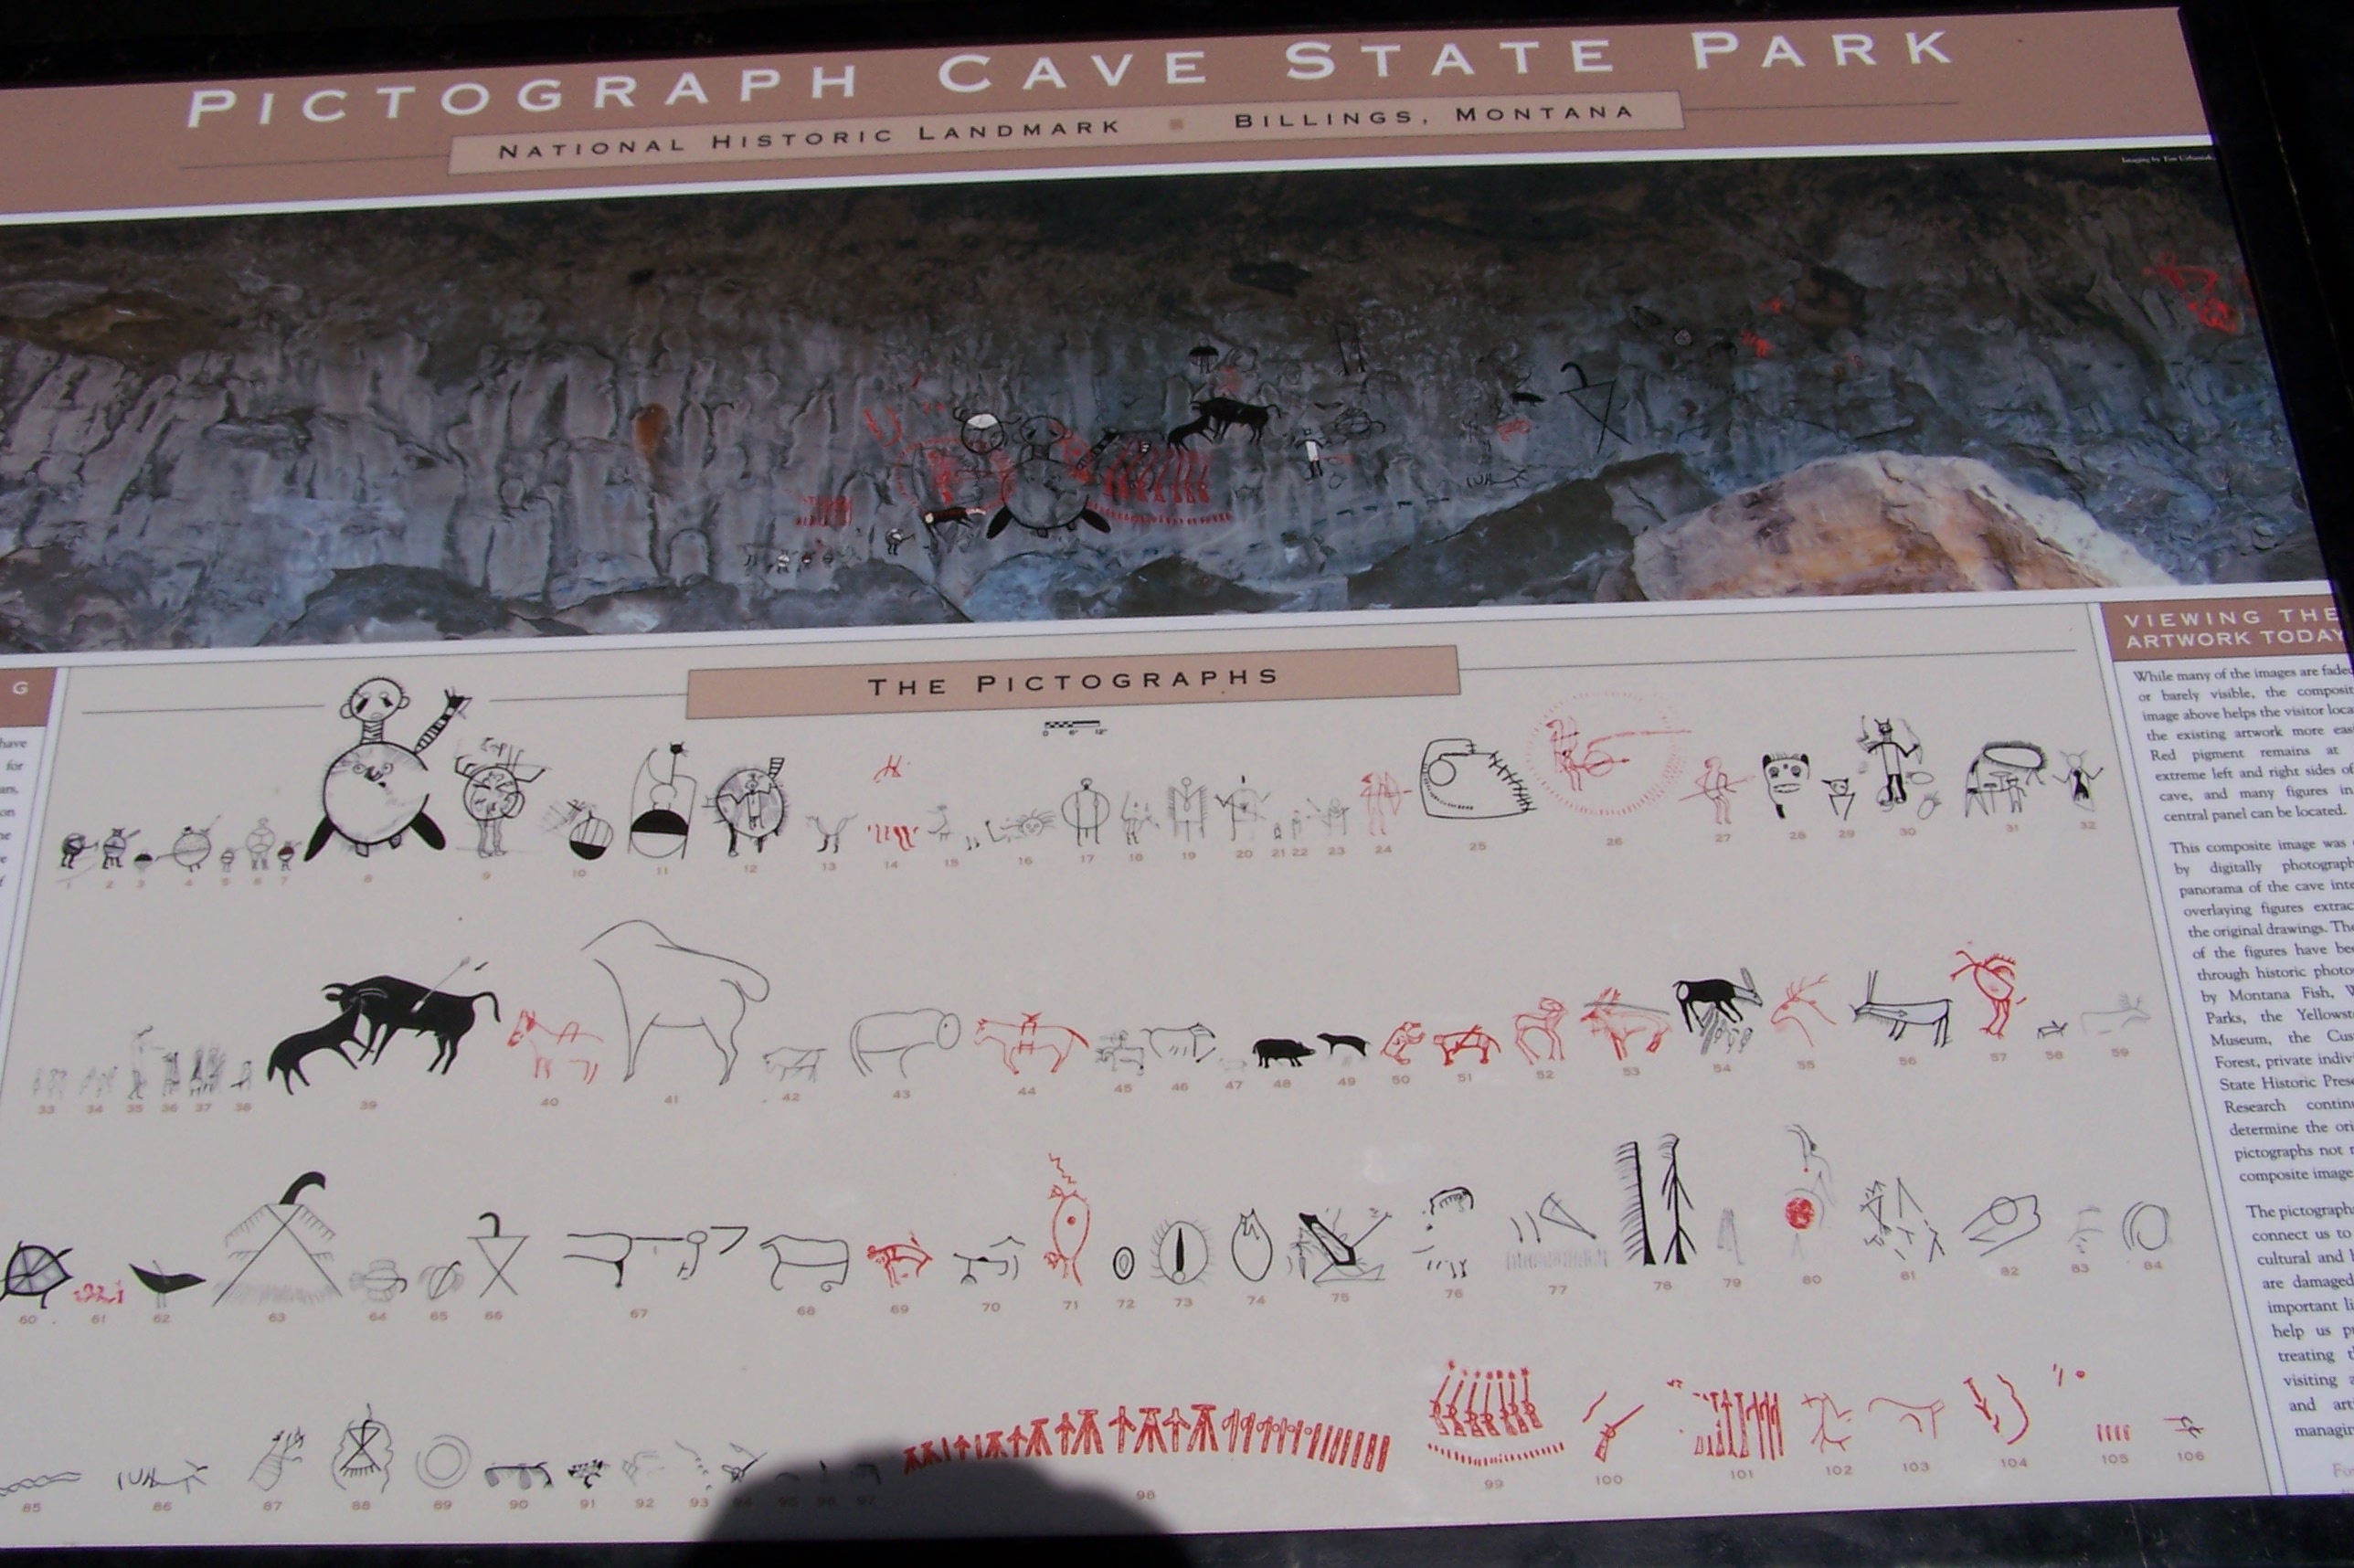 PICTOGRAPH CAVE STATE PARK
NATIONAL HISTORIC LANDMARK ▪ BILLINGS, MONTANA
Imaging by Tim
G
have
for
on
THE PICTOGRAPHS
0 6" 12"
1 2 3 4 5 6 7 8 9 10 11 12 13 14 15 16 17 18 19 20 21 22 23 24 25 26 27 28 29 30 31 32
33 34 35 36 37 38 39 40 41 42 43 44 45 46 47 48 49 50 51 52 53 54 55 56 57 58 59
60 61 62 63 64 65 66 67 68 69 70 71 72 73 74 75 76 77 78 79 80 81 82 83 84
85 86 87 88 89 90 91 92 93 94 95 96 97 98 99 100 101 102 103 104 105 106
VIEWING THE
ARTWORK TODAY
While many of the images are faded
or barely visible, the composit
image above helps the visitor loca
the existing artwork more eas
Red pigment remains at
extreme left and right sides of
cave, and many figures in
central panel can be located.
This composite image was
by digitally photograph
panorama of the cave inte
overlaying figures extrac
the original drawings. The
of the figures have bee
through historic photo
by Montana Fish, W
Parks, the Yellowst
Museum, the Cus
Forest, private indivi
State Historic Prese
Research continu
determine the ori
pictographs not r
composite image
The pictograph
connect us to
cultural and h
are damaged
important li
help us p
treating t
visiting a
and art
managin